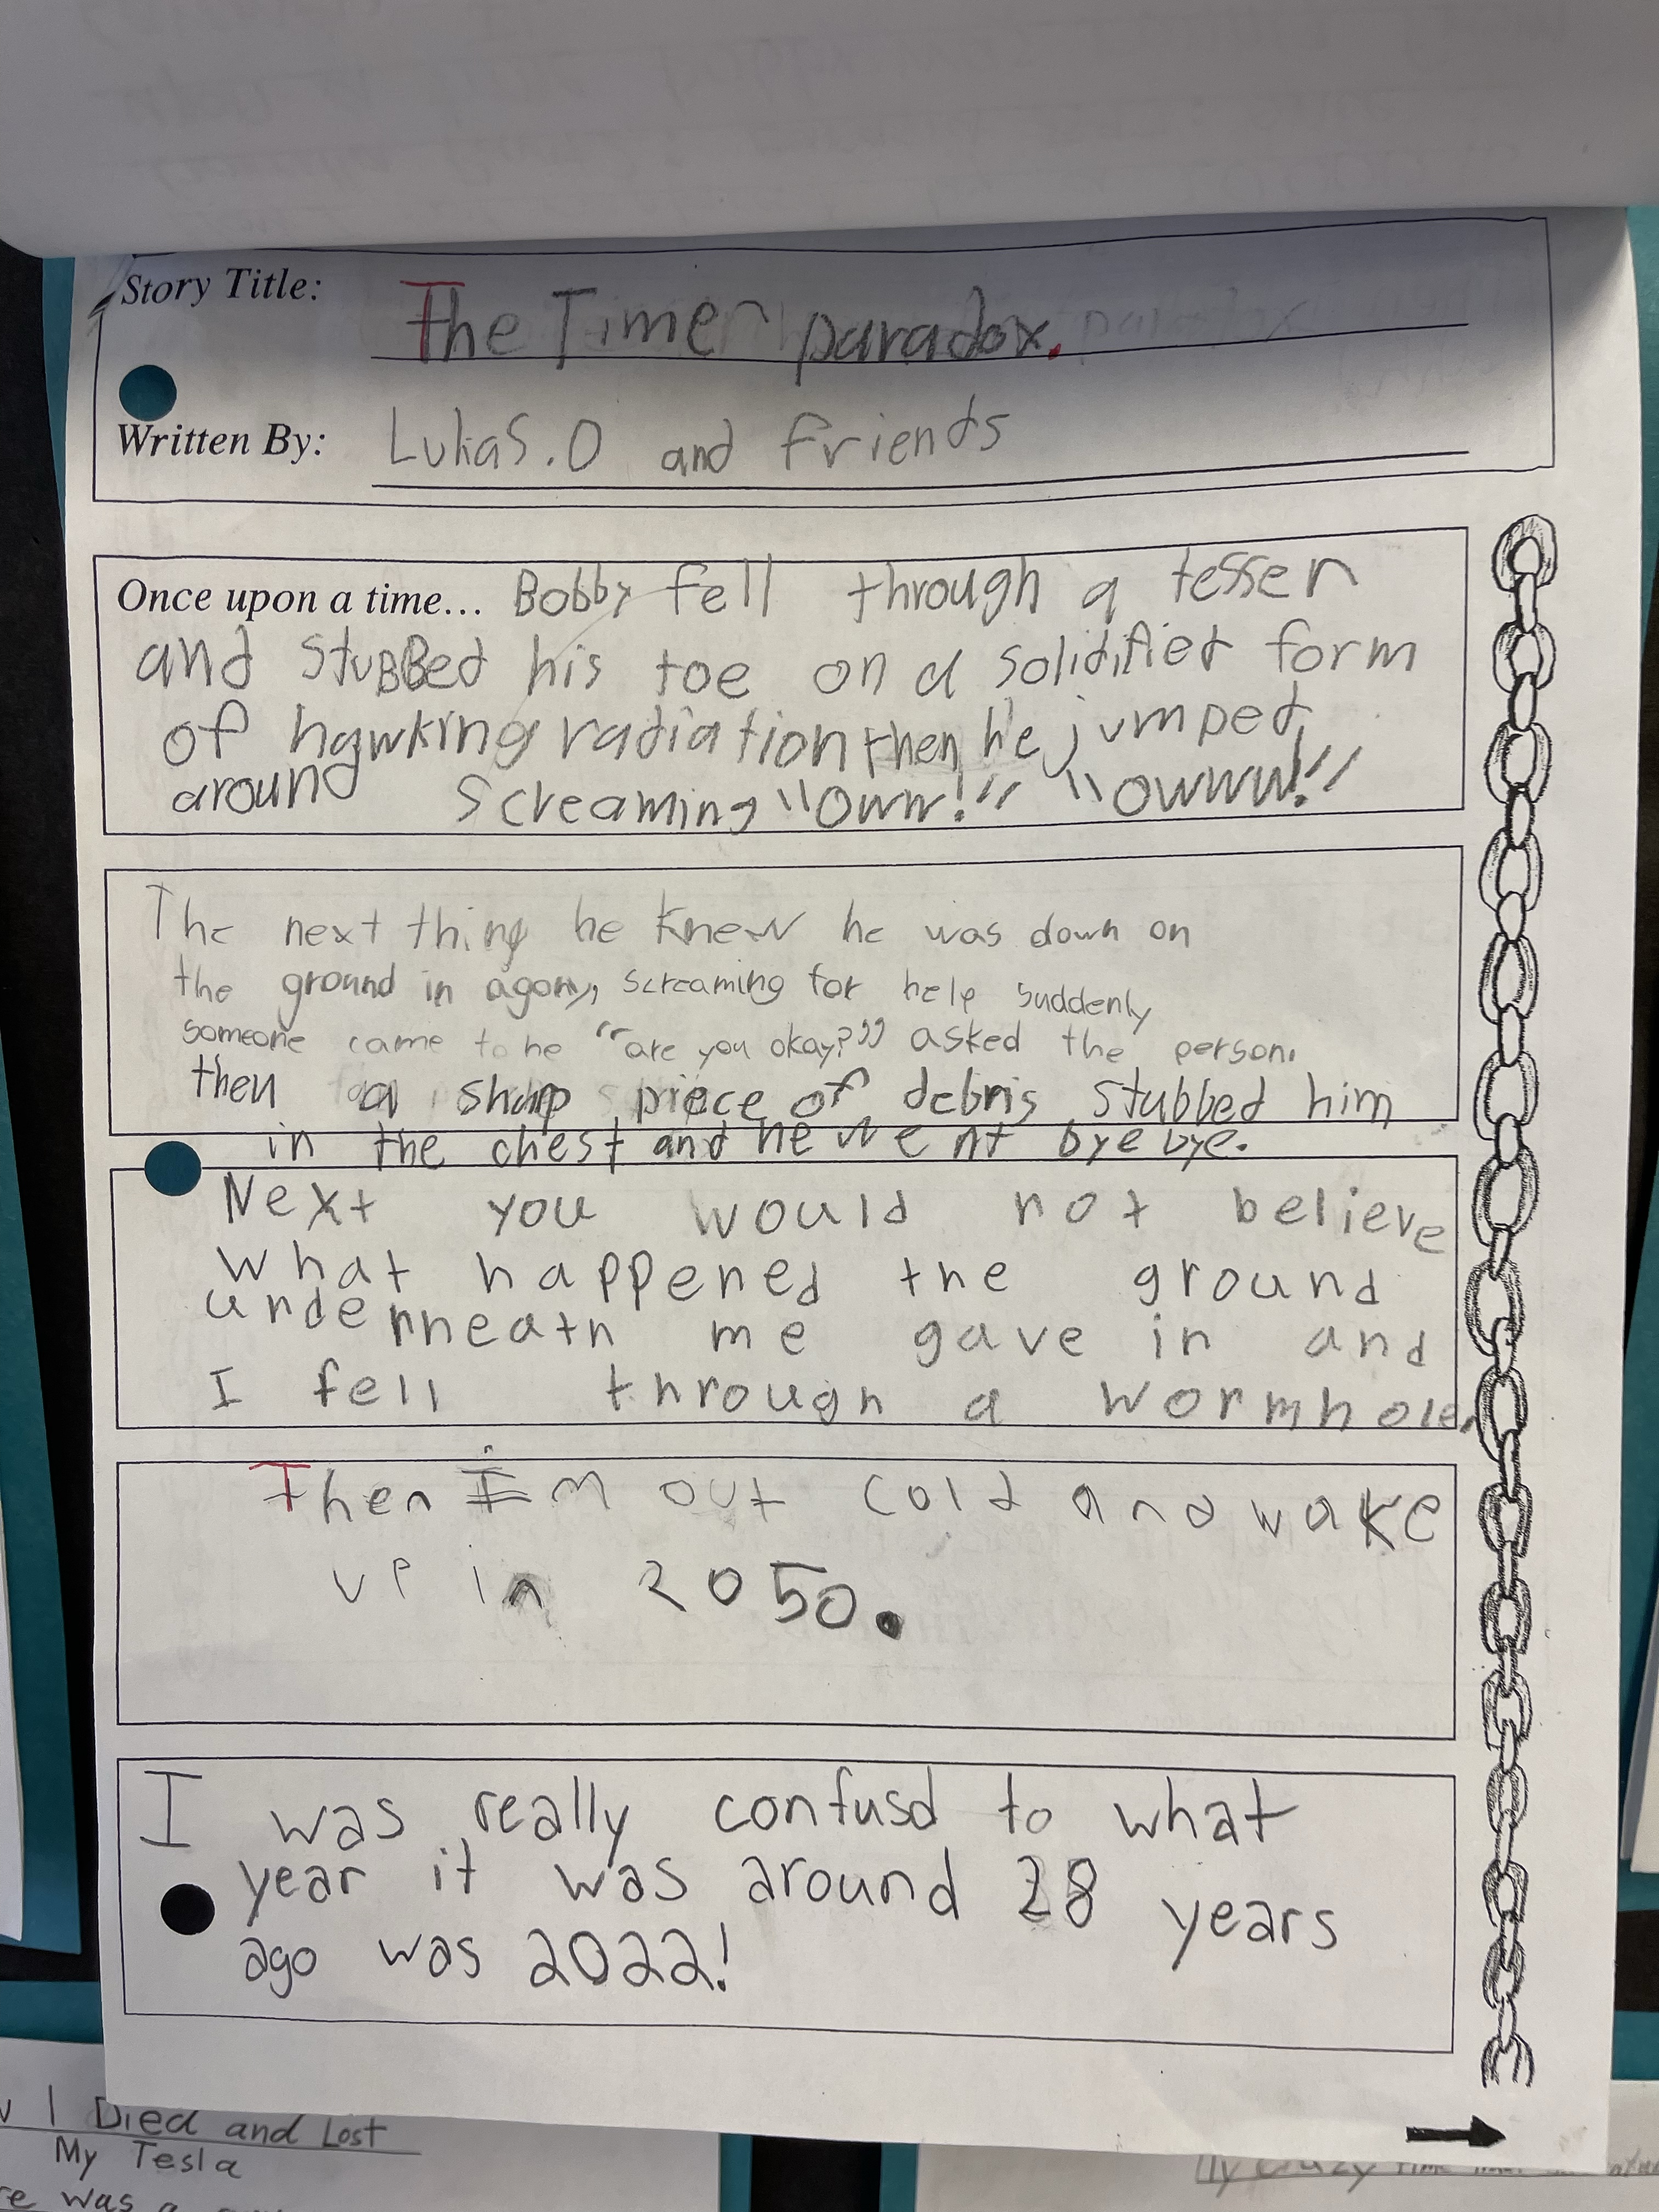 Story Title: The Time paradox.
Written By: Lukas.O and friends
Once upon a time... Bobby fell through a tesser
and stuBBed his toe on a solidified form
of hawking radiation then he jumped
around screaming "Oww!" "OWWW!"
The next thing he knew he was down on
the ground in agony, screaming for help suddenly
someone came to he "are you okay?" asked the person.
then a sharp piece of debris stubbed him
in the chest and he went bye bye.
Next you would not believe
what happened the ground
underneath me gave in and
I fell through a wormhole.
Then I'm out cold and wake
up in 2050.
I was really confusd to what
year it was around 28 years
ago was 2022!
I Died and Lost
My Tesla
was a
My crazy time